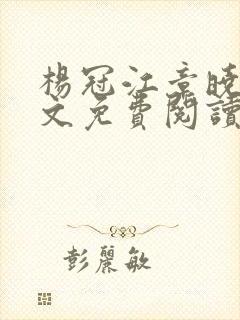 楊冠江章曉
文免費閱讀
彭麗敏